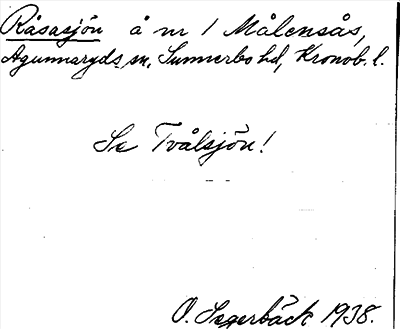 Råsasjön å nr 1 Målensås,
Agunnaryds sn, Sunnerbo hd, Kronob. l.
Se Tvålsjön!
O. Segerbäck 1938.